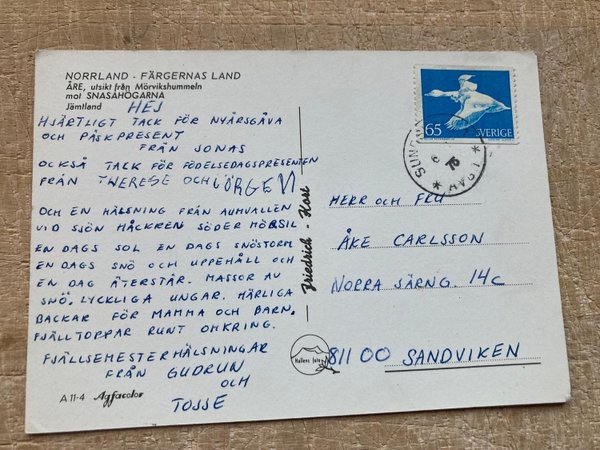 NORRLAND - FÄRGERNAS LAND
ÅRE, utsikt från Mörvikshummeln
mot SNASAHÖGARNA
Jämtland
HEJ
HJÄRTLIGT TACK FÖR NYÅRSGÅVA
OCH PÅSKPRESENT
FRÅN JONAS
OCKSÅ TACK FÖR FÖDELSEDAGSPRESENTEN
FRÅN THERESE OCH JÖRGEN
OCH EN HÄLSNING FRÅN AUMVALLEN
VID SJÖN HÅCKREN SÖDER MÖRSIL
EN DAGS SOL EN DAGS SNÖSTORM
EN DAGS SNÖ OCH UPPEHÅLL OCH
EN DAG ÅTERSTÅR. MASSOR AV
SNÖ. LYCKLIGA UNGAR. HÄRLIGA
BACKAR FÖR MAMMA OCH BARN.
FJÄLLTOPPAR RUNT OMKRING.
FJÄLLSEMESTERHÄLSNINGAR
FRÅN GUDRUN
OCH
TOSSE
A 11-4 Agfacolor
Friedrich - Kort
Hallens foto
65 SVERIGE
HERR OCH FRU
ÅKE CARLSSON
NORRA SÄRNG. 14C
811 00 SANDVIKEN